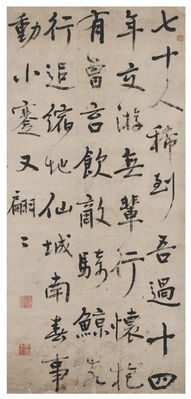 七十人稀到吾過十四
年交游無輩行懷抱
有曾玄飲敵騎鯨客
行追縮地仙城南春事
動小蹇又翩〻